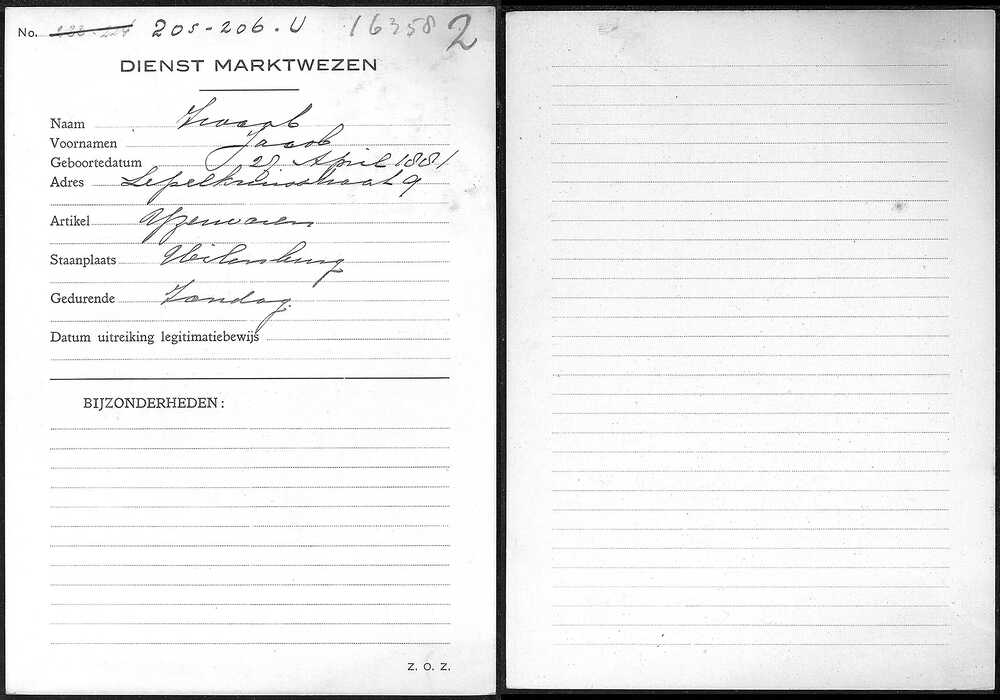 No. 205-206.U 16358 2
DIENST MARKTWEZEN
Naam Zwaab
Voornamen Jacob
Geboortedatum 28 April 1881
Adres Lepelkruisstraat 9
Artikel Yzerwaren
Staanplaats Uilenburg
Gedurende Zondag
Datum uitreiking legitimatiebewijs
BIJZONDERHEDEN:
Z. O. Z.